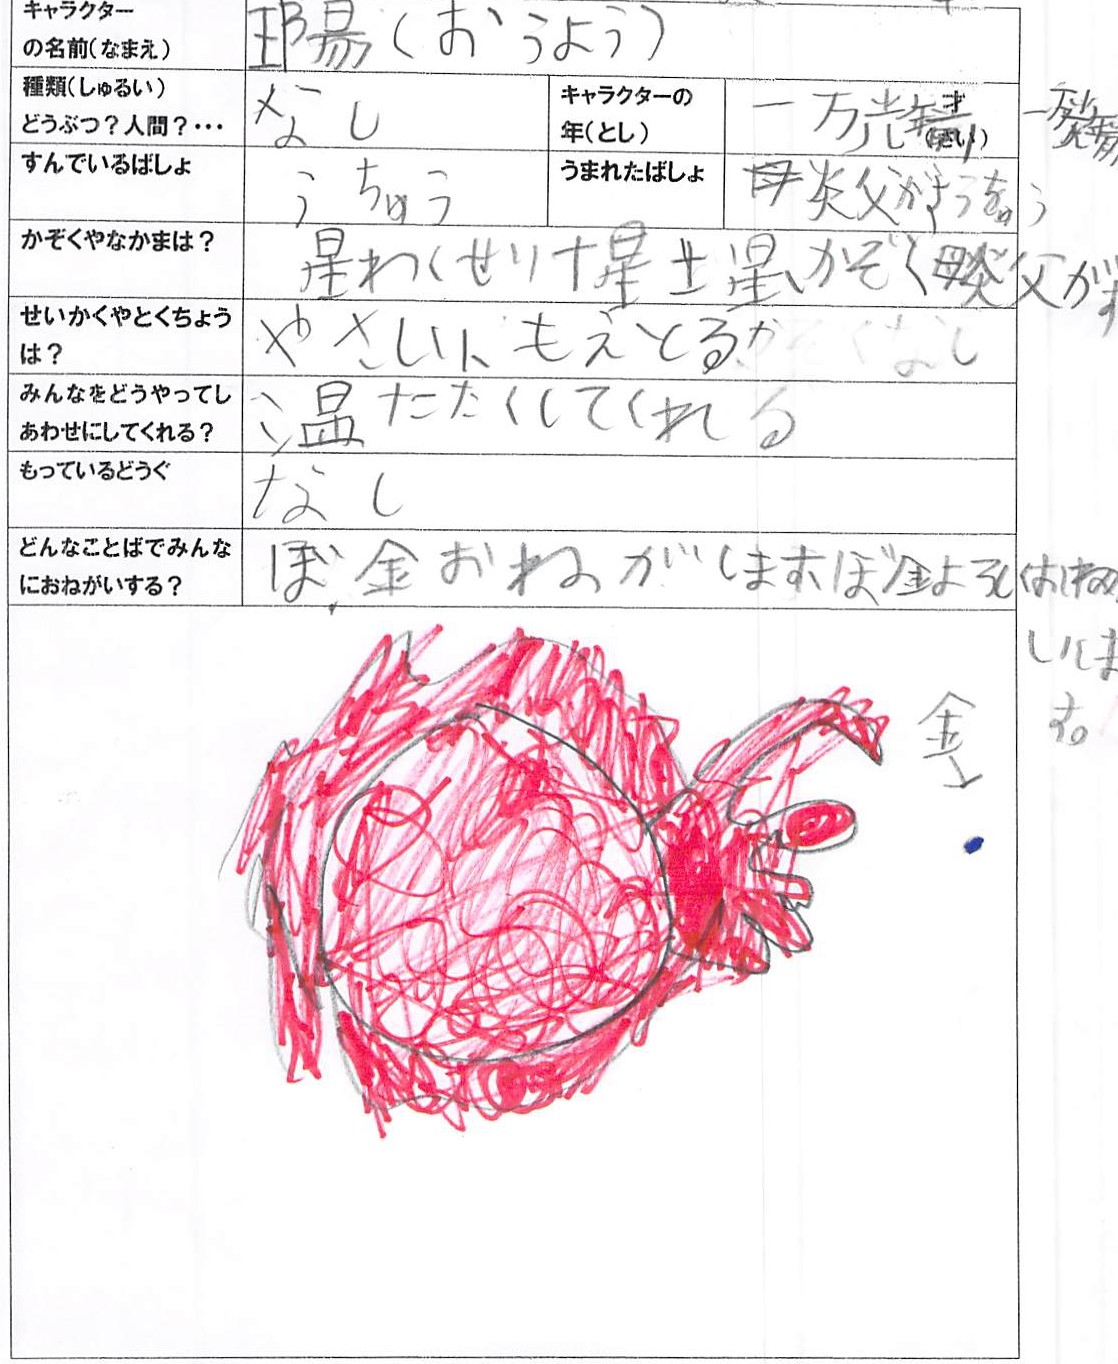 キャラクター
の名前(なまえ)
(おうよう)
種類(しゅるい)
どうぶつ?人間?・・・
なし
キャラクターの
年(とし)
一万光年
才
(さい)
すんでいるばしょ
うちゅう
うまれたばしょ
母炎父がすうちゅう
かぞくやなかまは?
星わくせい十星土星、かぞく母炎父がす
せいかくやとくちょう
は?
やさしい、もえとる
みんなをどうやってし
あわせにしてくれる?
温たたくしてくれる
もっているどうぐ
なし
どんなことばでみんな
におねがいする?
ぼ金おねがいします。ぼ金よろしくおねが
いしま
す。
金